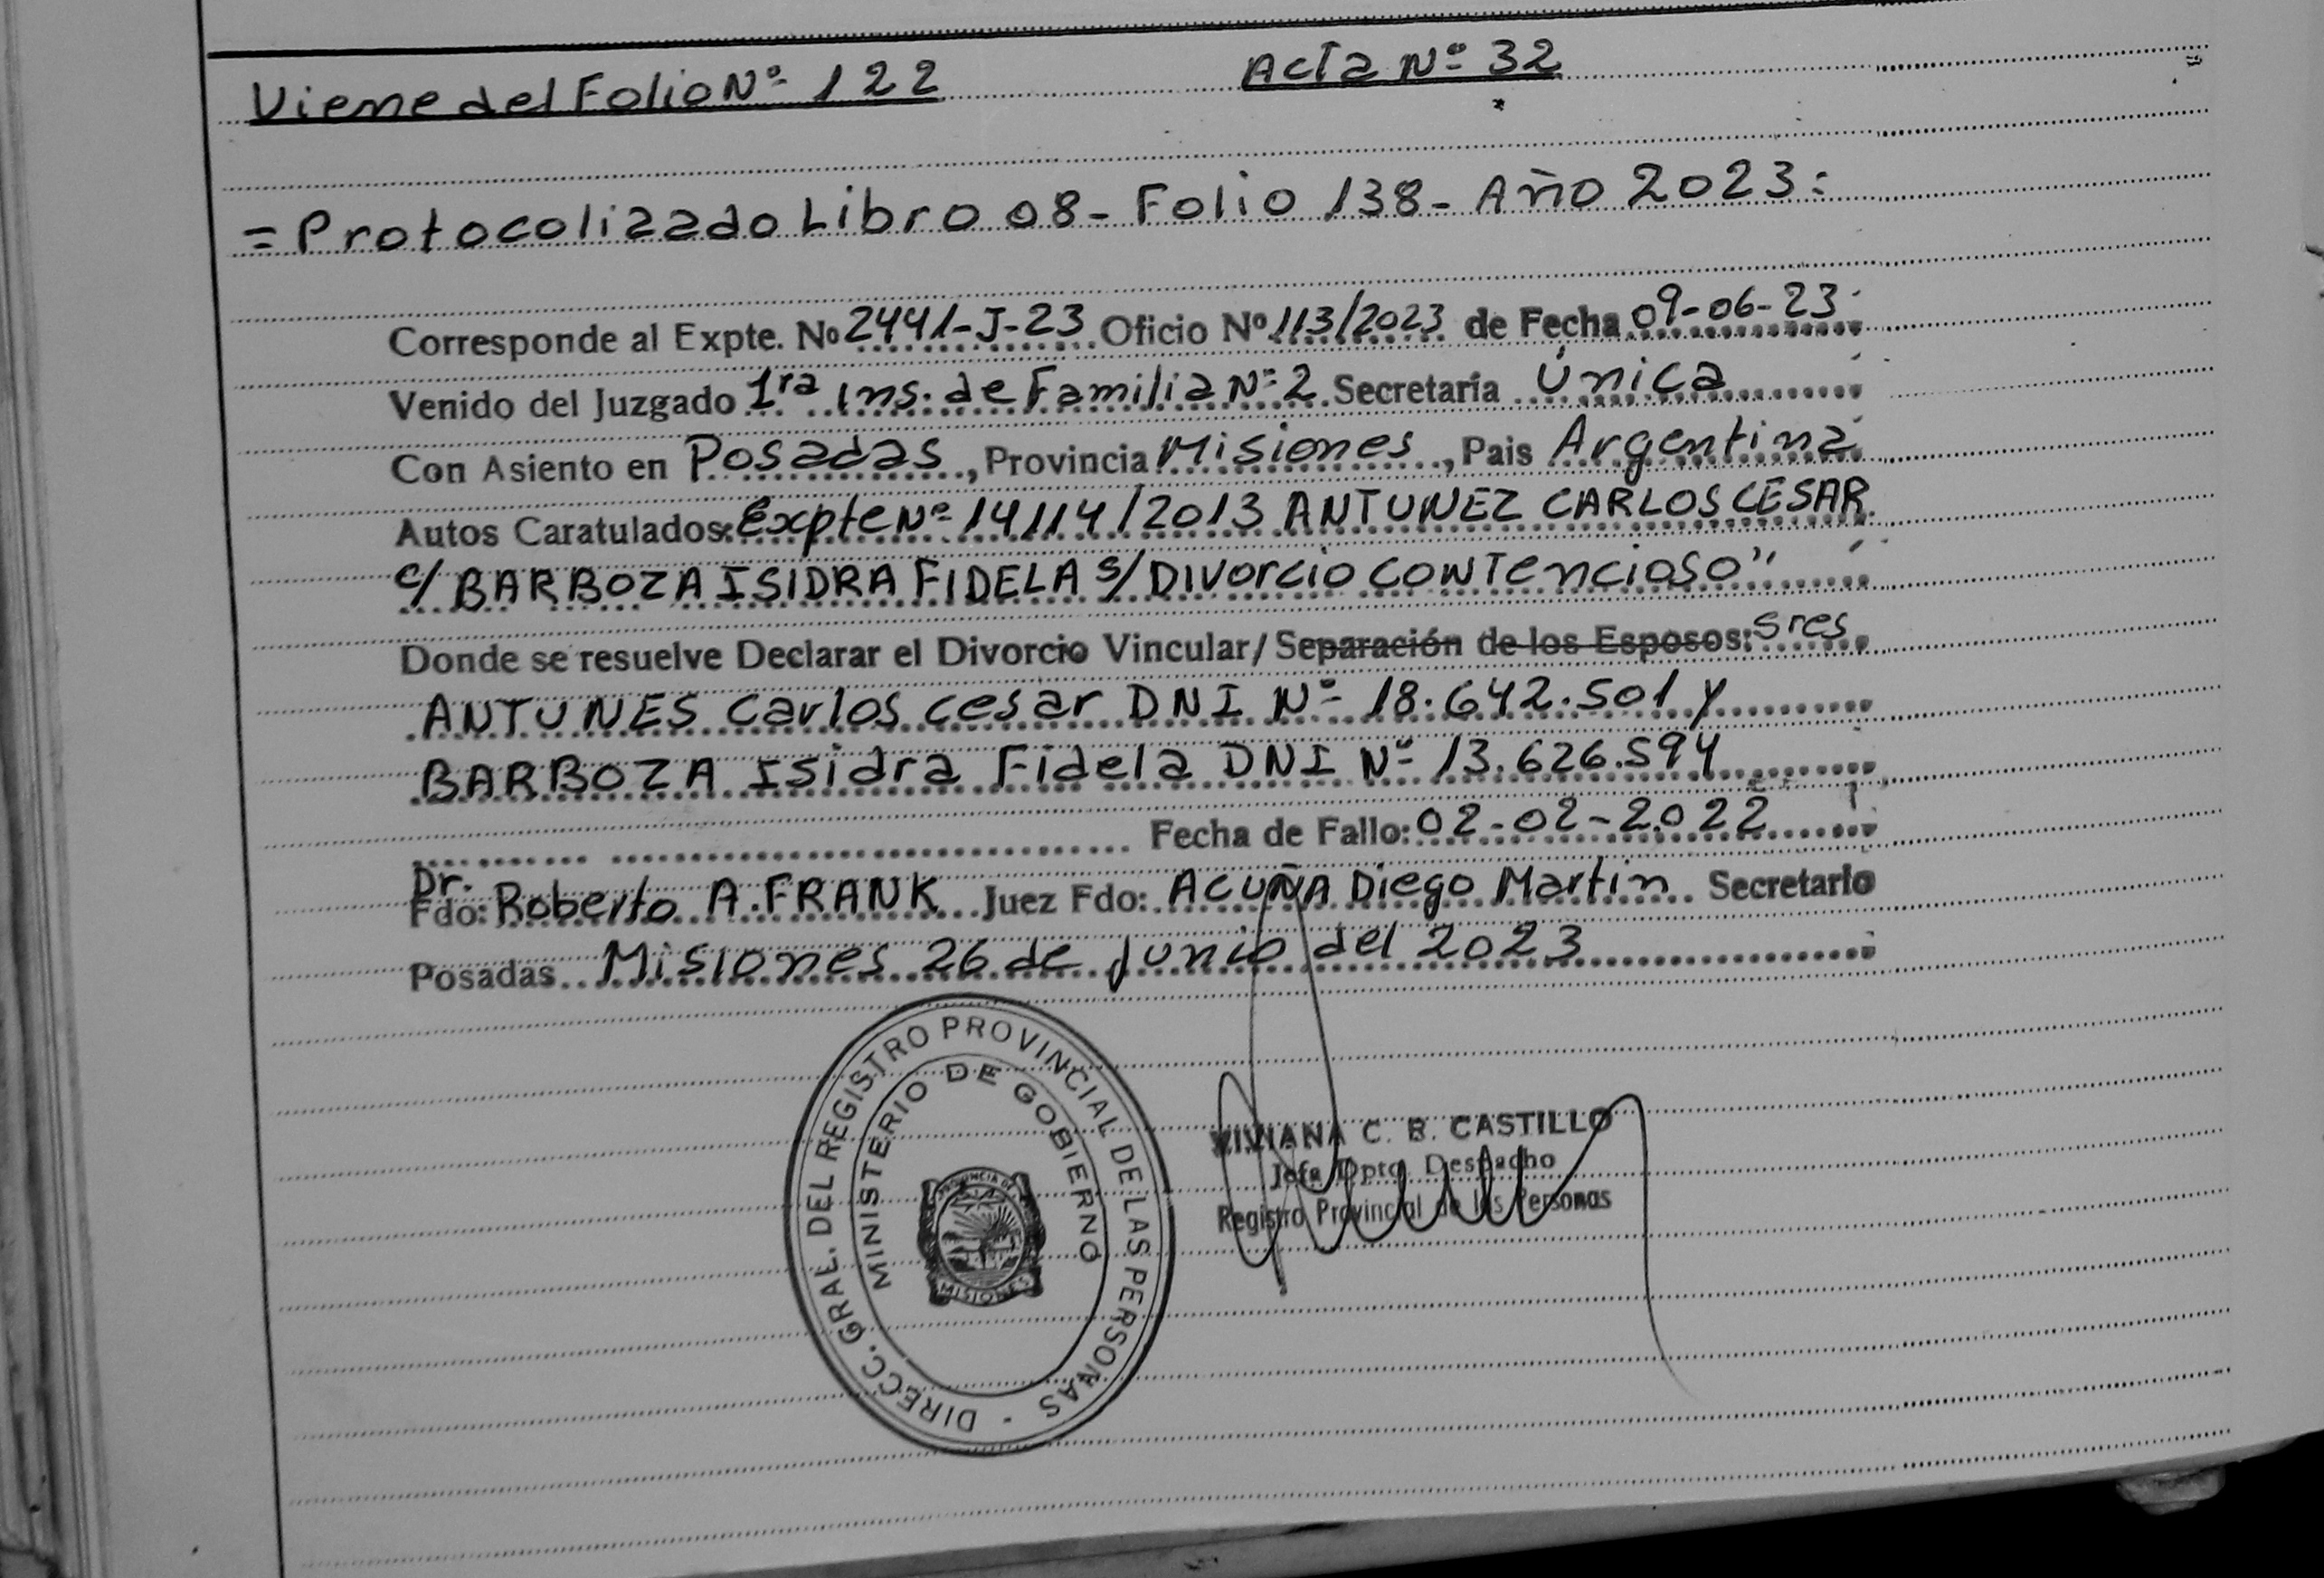 Viene del Folio Nº 122 Acta Nº 32
= Protocolizado Libro 08 - Folio 138 - Año 2023:
Corresponde al Expte. Nº 2441-J-23 Oficio Nº 113/2023 de Fecha 09-06-23
Venido del Juzgado 1ra Ins. de Familia Nº 2 Secretaría Única
Con Asiento en Posadas, Provincia Misiones, Pais Argentina
Autos Caratulados: Expte Nº 14114/2013 ANTUNEZ CARLOS CESAR
c/ BARBOZA ISIDRA FIDELA s/ DIVOrcio CONTencioso"
Donde se resuelve Declarar el Divorcio Vincular/ Separación de los Esposos: Sres
ANTUNES Carlos cesar DNI Nº 18.642.501 y
BARBOZA Isidra Fidela DNI Nº 13.626.594
Fecha de Fallo: 02-02-2022
Dr.
Fdo: Roberto A. FRANK Juez Fdo: ACUÑA Diego Martin Secretario
Posadas Misiones 26 de junio del 2023
DIRECC. GRAL. DEL REGISTRO PROVINCIAL DE LAS PERSONAS -
MINISTERIO DE GOBIERNO
PROVINCIA DE
MISIONES
VIVIANA C. B. CASTILLO
Jefa Dpto. Despacho
Registro Provincial de las Personas